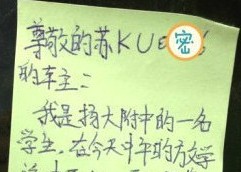 尊敬的苏KU密
的车主：
我是扬大附中的一名
学生，在今天中午的放学